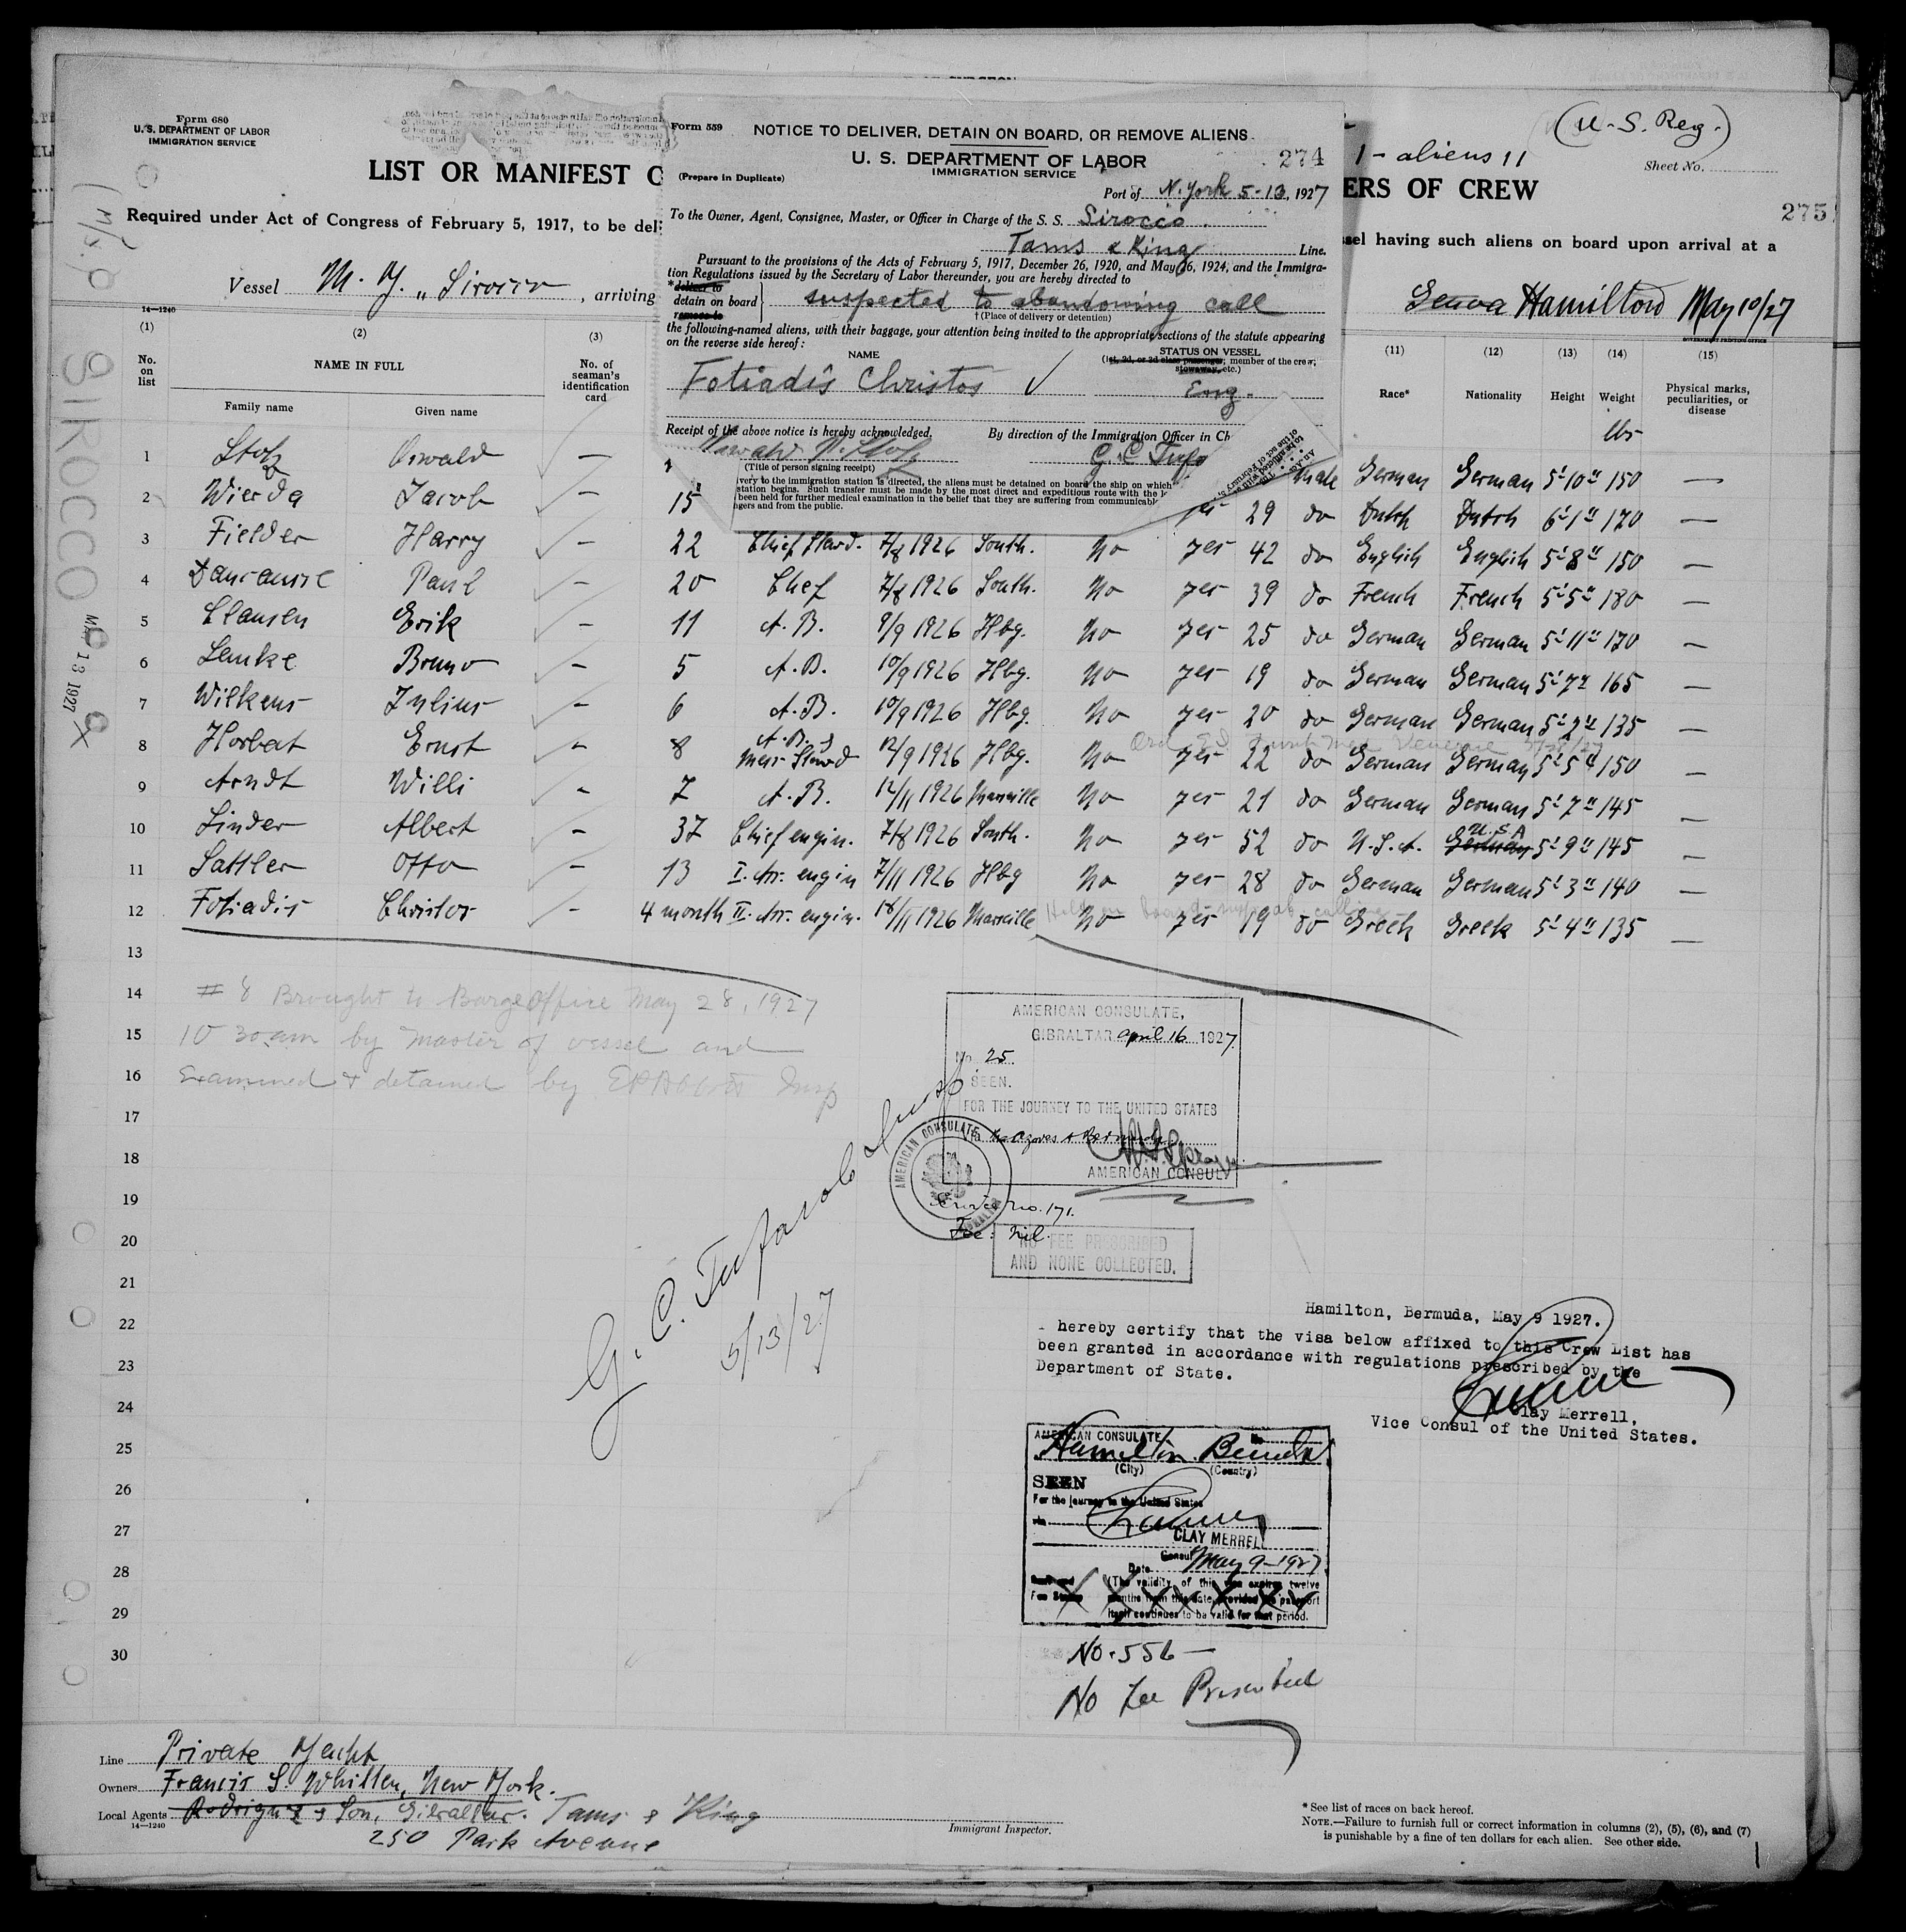 Form 680
U. S. DEPARTMENT OF LABOR
IMMIGRATION SERVICE
LIST OR MANIFEST O
Required under Act of Congress of February 5, 1917, to be deli
Vessel M. Y. "Sirocco", arriving
Form 559
NOTICE TO DELIVER, DETAIN ON BOARD, OR REMOVE ALIENS
U. S. DEPARTMENT OF LABOR
IMMIGRATION SERVICE
274
(Prepare in Duplicate)
Port of N. York 5-13, 1927
To the Owner, Agent, Consignee, Master, or Officer in Charge of the S. S. Sirocco
Tams & King Line.
Pursuant to the provisions of the Acts of February 5, 1917, December 26, 1920, and May 26, 1924, and the Immigra-
tion Regulations issued by the Secretary of Labor thereunder, you are hereby directed to
*deliver to
detain on board
remove to
suspected to abandoning call
† (Place of delivery or detention)
the following-named aliens, with their baggage, your attention being invited to the appropriate sections of the statute appearing
on the reverse side hereof:
NAME
STATUS ON VESSEL
(1st, 2d, or 3d class passenger, member of the crew,
stowaway, etc.)
Fotiadis Christos ✓ Eng.
Receipt of the above notice is hereby acknowledged.
By direction of the Immigration Officer in Ch
G. C. Tufa
(Title of person signing receipt)
very to the immigration station is directed, the aliens must be detained on board the ship on which
station begins. Such transfer must be made by the most direct and expeditious route with the l
been held for further medical examination in the belief that they are suffering from communicabl
ngers and from the public.
(U.S. Reg.)
1 - aliens 11
Sheet No.
ERS OF CREW
275
ssel having such aliens on board upon arrival at a
Genoa Hamilton May 10/27
14—1240
GOVERNMENT PRINTING OFFICE
(1) (2) (3) (11) (12) (13) (14) (15)
No. on list
NAME IN FULL
Family name
Given name
No. of seaman's identification card
Race*
Nationality
Height
Weight
lbs
Physical marks, peculiarities, or disease
1 Stolz Oswald — male German German 5'10" 150
2 Wierda Jacob — 15 yes 29 do Dutch Dutch 6'1" 170 —
3 Fielder Harry — 22 Chief Stewd. 7/8 1926 South. No yes 42 do English English 5'8" 150 —
4 Paul — 20 Chef 7/8 1926 South. No yes 39 do French French 5'5" 180 —
5 Clausen Erik — 11 A. B. 9/9 1926 Hbg. No yes 25 do German German 5'11" 170 —
6 Lemke Bruno — 5 A. B. 10/9 1926 Hbg. No yes 19 do German German 5'7" 165 —
7 Wilkens Julius — 6 A. B. 10/9 1926 Hbg. No yes 20 do German German 5'2" 135 —
8 Horbat Ernst — 8 A. B. & Mess Stewd 12/9 1926 Hbg. No yes 22 do German German 5'5" 150 —
9 Arndt Willi — 7 A. B. 12/11 1926 Marseille No yes 21 do German German 5'7" 145 —
10 Linder Albert — 37 Chief engin. 7/8 1926 South. No yes 52 do U.S.A. German U.S.A 5'9" 145 —
11 Sattler Otto — 13 I. Ass. engin 7/11 1926 Hbg No yes 28 do German German 5'3" 140 —
12 Fotiadis Christos — 4 month II. Ass. engin. 18/11 1926 Marseille No yes 19 do Greek Greek 5'4" 135 —
13
14
15
16
17
18
19
20
21
22
23
24
25
26
27
28
29
30
SIROCCO
MAY 13 1927
# 8 Brought to Barge Office May 28, 1927
10 30 am by Master of vessel and
Examined & detained by Insp
AMERICAN CONSULATE,
GIBRALTAR April 16 1927.
No. 25.
SEEN.
FOR THE JOURNEY TO THE UNITED STATES
Via the Azores & Bermuda
AMERICAN CONSUL
AMERICAN CONSULATE
GIBRALTAR
Service No. 171.
Fee: Nil.
NO FEE PRESCRIBED
AND NONE COLLECTED.
G. C. Tufarolo
5/13/27
Hamilton, Bermuda, May 9 1927.
I hereby certify that the visa below affixed to this Crew List has
been granted in accordance with regulations prescribed by the
Department of State.
Clay Merrell,
Vice Consul of the United States.
AMERICAN CONSULATE No
Hamilton Bermuda
(City) (Country)
SEEN
For the journey to the United States
via
CLAY MERRELL
Consul
Date May 9-1927
(The validity of this visa expires twelve
months from this date, provided the passport
itself continues to be valid for that period.
No. 556 —
No Fee Prescribed
Line Private Yacht
Owners Francis S. Whitten, New York.
Local Agents Rodriguez & Son, Gibraltar. Tams & King
14—1240
250 Park Avenue
Immigrant Inspector.
* See list of races on back hereof.
NOTE.—Failure to furnish full or correct information in columns (2), (5), (6), and (7)
is punishable by a fine of ten dollars for each alien. See other side.